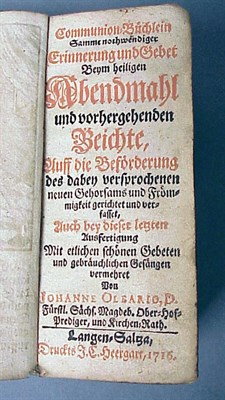 Communion-Büchlein
Samme nothwendiger
Erinnerung und Gebet
Beym heiligen
Abendmahl
und vorhergehenden
Beichte,
Auff die Beförderung
des dabey versprochenen
neuen Gehorsams und Fröm-
migkeit gerichtet und ver-
fasset,
Auch bey dieser letzten
Ausfertigung
Mit etlichen schönen Gebeten
und gebräuchlichen Gesängen
vermehret
Von
JOHANNE OLEARIO, D.
Fürstl. Sächs. Magdeb. Ober-Hof-
Prediger, und Kirchen-Rath.
Langen-Saltza,
Druckts J.C. Heergart, 1716.